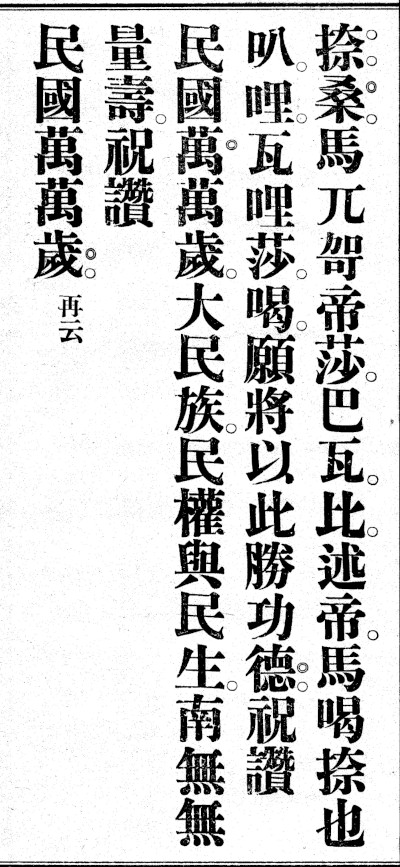 捺桑馬兀哿帝莎巴瓦比述帝馬喝捺也
叭哩瓦哩莎喝願將以此勝功德祝讚
民國萬萬歲大民族民權與民生南無無
量壽祝讚
民國萬萬歲再云